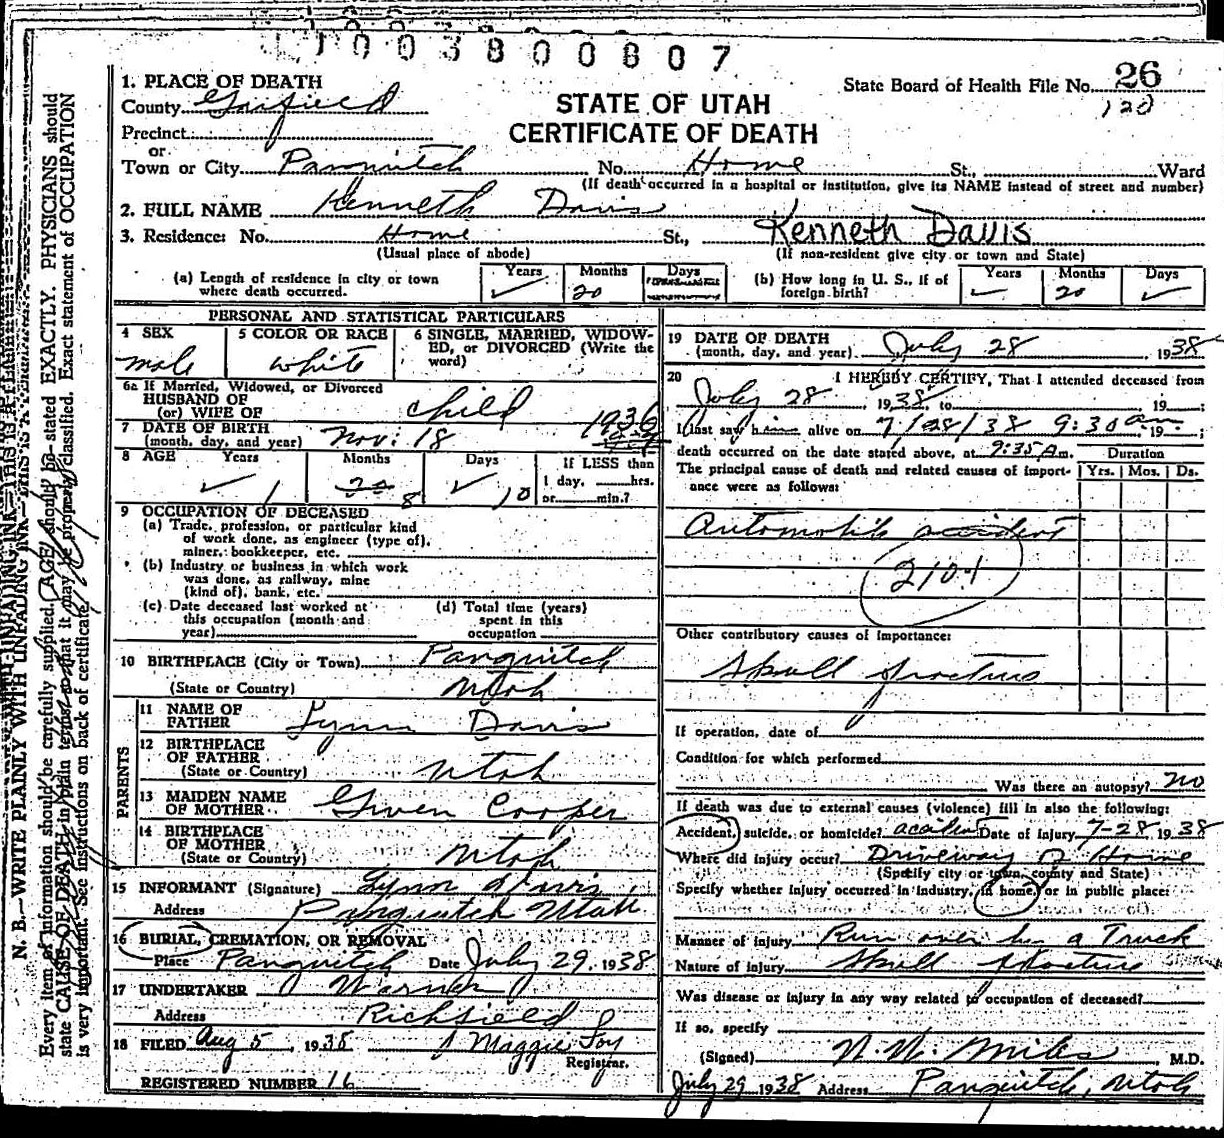 1003800807
1. PLACE OF DEATH
County Garfield
State Board of Health File No. 26
120
STATE OF UTAH
CERTIFICATE OF DEATH
Precinct
or
Town or City Panguitch No. Home St., Ward
(If death occurred in a hospital or institution, give its NAME instead of street and number)
2. FULL NAME Kenneth Davis
3. Residence: No. Home St., Kenneth Davis
(Usual place of abode) (If non-resident give city or town and State)
(a) Length of residence in city or town where death occurred. Years ✓ Months 20 Days
(b) How long in U. S., if of foreign birth? Years ✓ Months 20 Days ✓
PERSONAL AND STATISTICAL PARTICULARS
4 SEX male
5 COLOR OR RACE white
6 SINGLE, MARRIED, WIDOWED, or DIVORCED (Write the word)
6a If Married, Widowed, or Divorced
HUSBAND OF
(or) WIFE OF child
7 DATE OF BIRTH
(month, day, and year) Nov. 18 1936
8 AGE Years ✓ 1 Months 20 8 Days ✓ 10 If LESS than
1 day, hrs.
or min.?
9 OCCUPATION OF DECEASED
(a) Trade, profession, or particular kind
of work done, as engineer (type of),
miner, bookkeeper, etc.
(b) Industry or business in which work
was done, as railway, mine
(kind of), bank, etc.
(c) Date deceased last worked at
this occupation (month and
year)
(d) Total time (years)
spent in this
occupation
10 BIRTHPLACE (City or Town) Panguitch
(State or Country) Utah
PARENTS
11 NAME OF
FATHER Lynn Davis
12 BIRTHPLACE
OF FATHER
(State or Country) Utah
13 MAIDEN NAME
OF MOTHER Gwen Cooper
14 BIRTHPLACE
OF MOTHER
(State or Country) Utah
15 INFORMANT (Signature) Lynn Davis
Address Panguitch Utah
16 BURIAL, CREMATION, OR REMOVAL
Place Panguitch Date July 29, 1938
17 UNDERTAKER Warner
Address Richfield
18 FILED Aug 5, 1938 Maggie Foy
Registrar.
REGISTERED NUMBER 16
19 DATE OF DEATH
(month, day, and year) July 28 1938
20 I HEREBY CERTIFY, That I attended deceased from
July 28, 1938, to 19 ;
I last saw him alive on 7/28/38 9:30 am 19 ;
death occurred on the date stated above, at 9:35 A.m.
The principal cause of death and related causes of importance were as follows:
Duration
Yrs. Mos. Ds.
Automobile accident
210-1
Other contributory causes of importance:
Skull fracture
If operation, date of
Condition for which performed
Was there an autopsy? no
If death was due to external causes (violence) fill in also the following:
Accident, suicide, or homicide? accident Date of injury 7-28, 1938
Where did injury occur? Driveway Home
(Specify city or town, county and State)
Specify whether injury occurred in industry, in home, or in public place:
Manner of injury Run over by a Truck
Nature of injury Skull fracture
Was disease or injury in any way related to occupation of deceased?
If so, specify
(Signed) Miles M.D.
July 29 1938 Address Panguitch, Utah
Every item of information should be carefully supplied. AGE should be stated EXACTLY. PHYSICIANS should
state CAUSE OF DEATH in plain terms so that it may be properly classified. Exact statement of OCCUPATION
is very important. See instructions on back of certificate.
N. B.—WRITE PLAINLY WITH UNFADING INK—THIS IS A PERMANENT